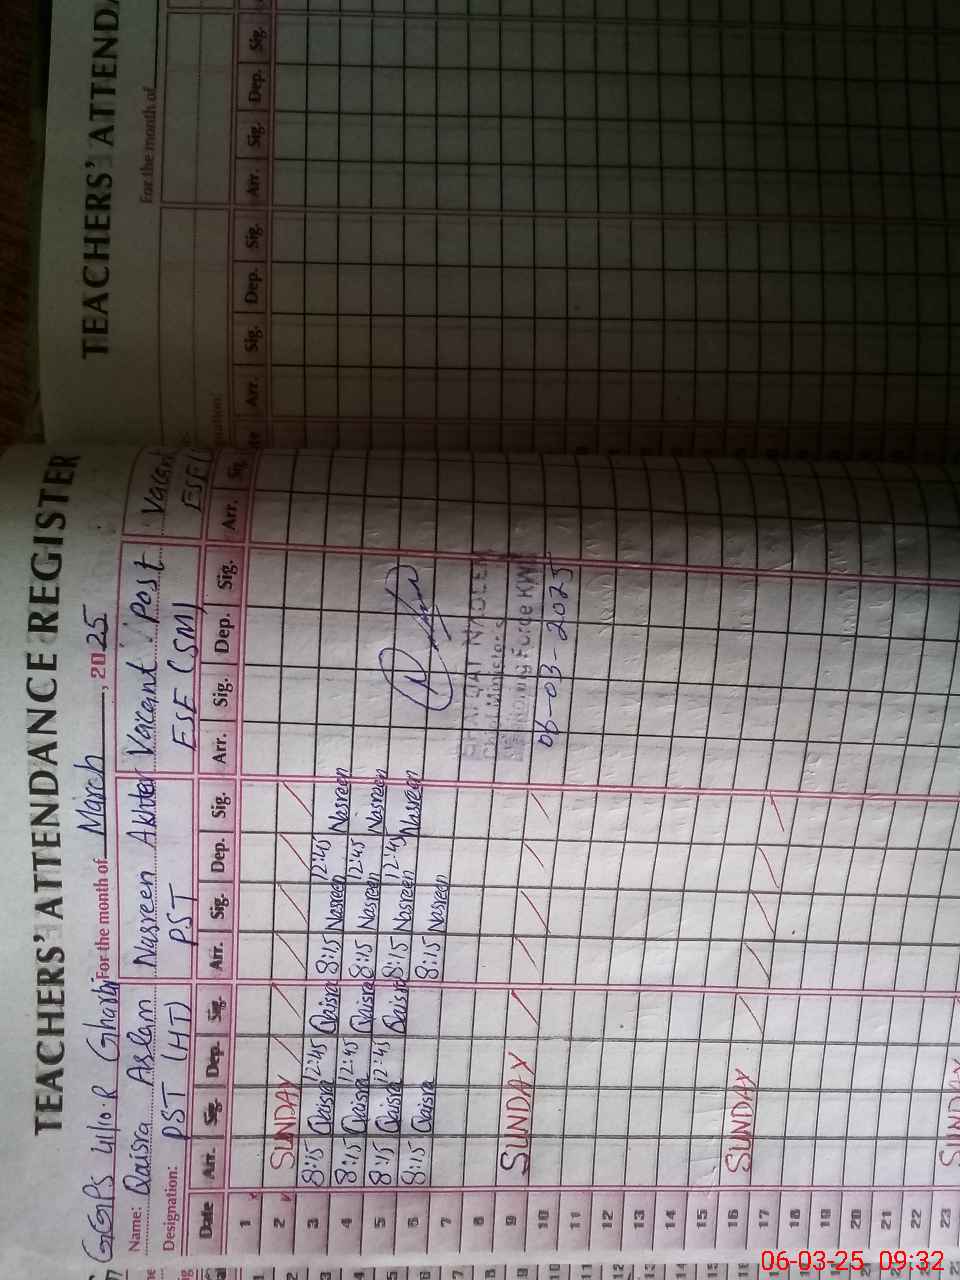 TEACHERS' ATTENDANCE REGISTER
GGPS 4/10.R Gharbi For the month of March, 2025
Name: Qaisra Aslam Nasreen Akhter Vacant Post Vacant
Designation: PST (HT) PST ESE (SM) ESE (
Date Arr. Sig. Dep. Sig. Arr. Sig. Dep. Sig. Arr. Sig. Dep. Sig. Arr. Sig.
1
2 SUNDAY
3 8:15 Qaisra 12:45 Qaisra 8:15 Nasreen 12:45 Nasreen
4 8:15 Qaisra 12:45 Qaisra 8:15 Nasreen 12:45 Nasreen
5 8:15 Qaisra 12:45 Qaisra 8:15 Nasreen 12:45 Nasreen
6 8:15 Qaisra 8:15 Nasreen
7
8
9 SUNDAY
10 06-03-2025
11
12
13
14
15
16 SUNDAY
17
18
19
20
21
22
23 SUNDAY
TEACHERS' ATTENDA
For the month of
Arr. Sig. Dep. Sig. Arr. Sig. Dep. Sig.
06-03-25 09:32